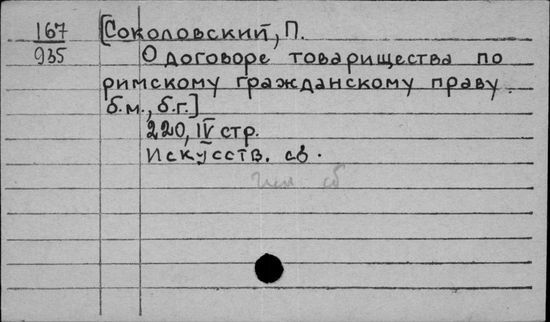 167
935
[Соколовский, П.
О договоре товарищества по
римскому гражданскому праву.
б.м., б.г.]
220, IV стр.
Искусств. сб.